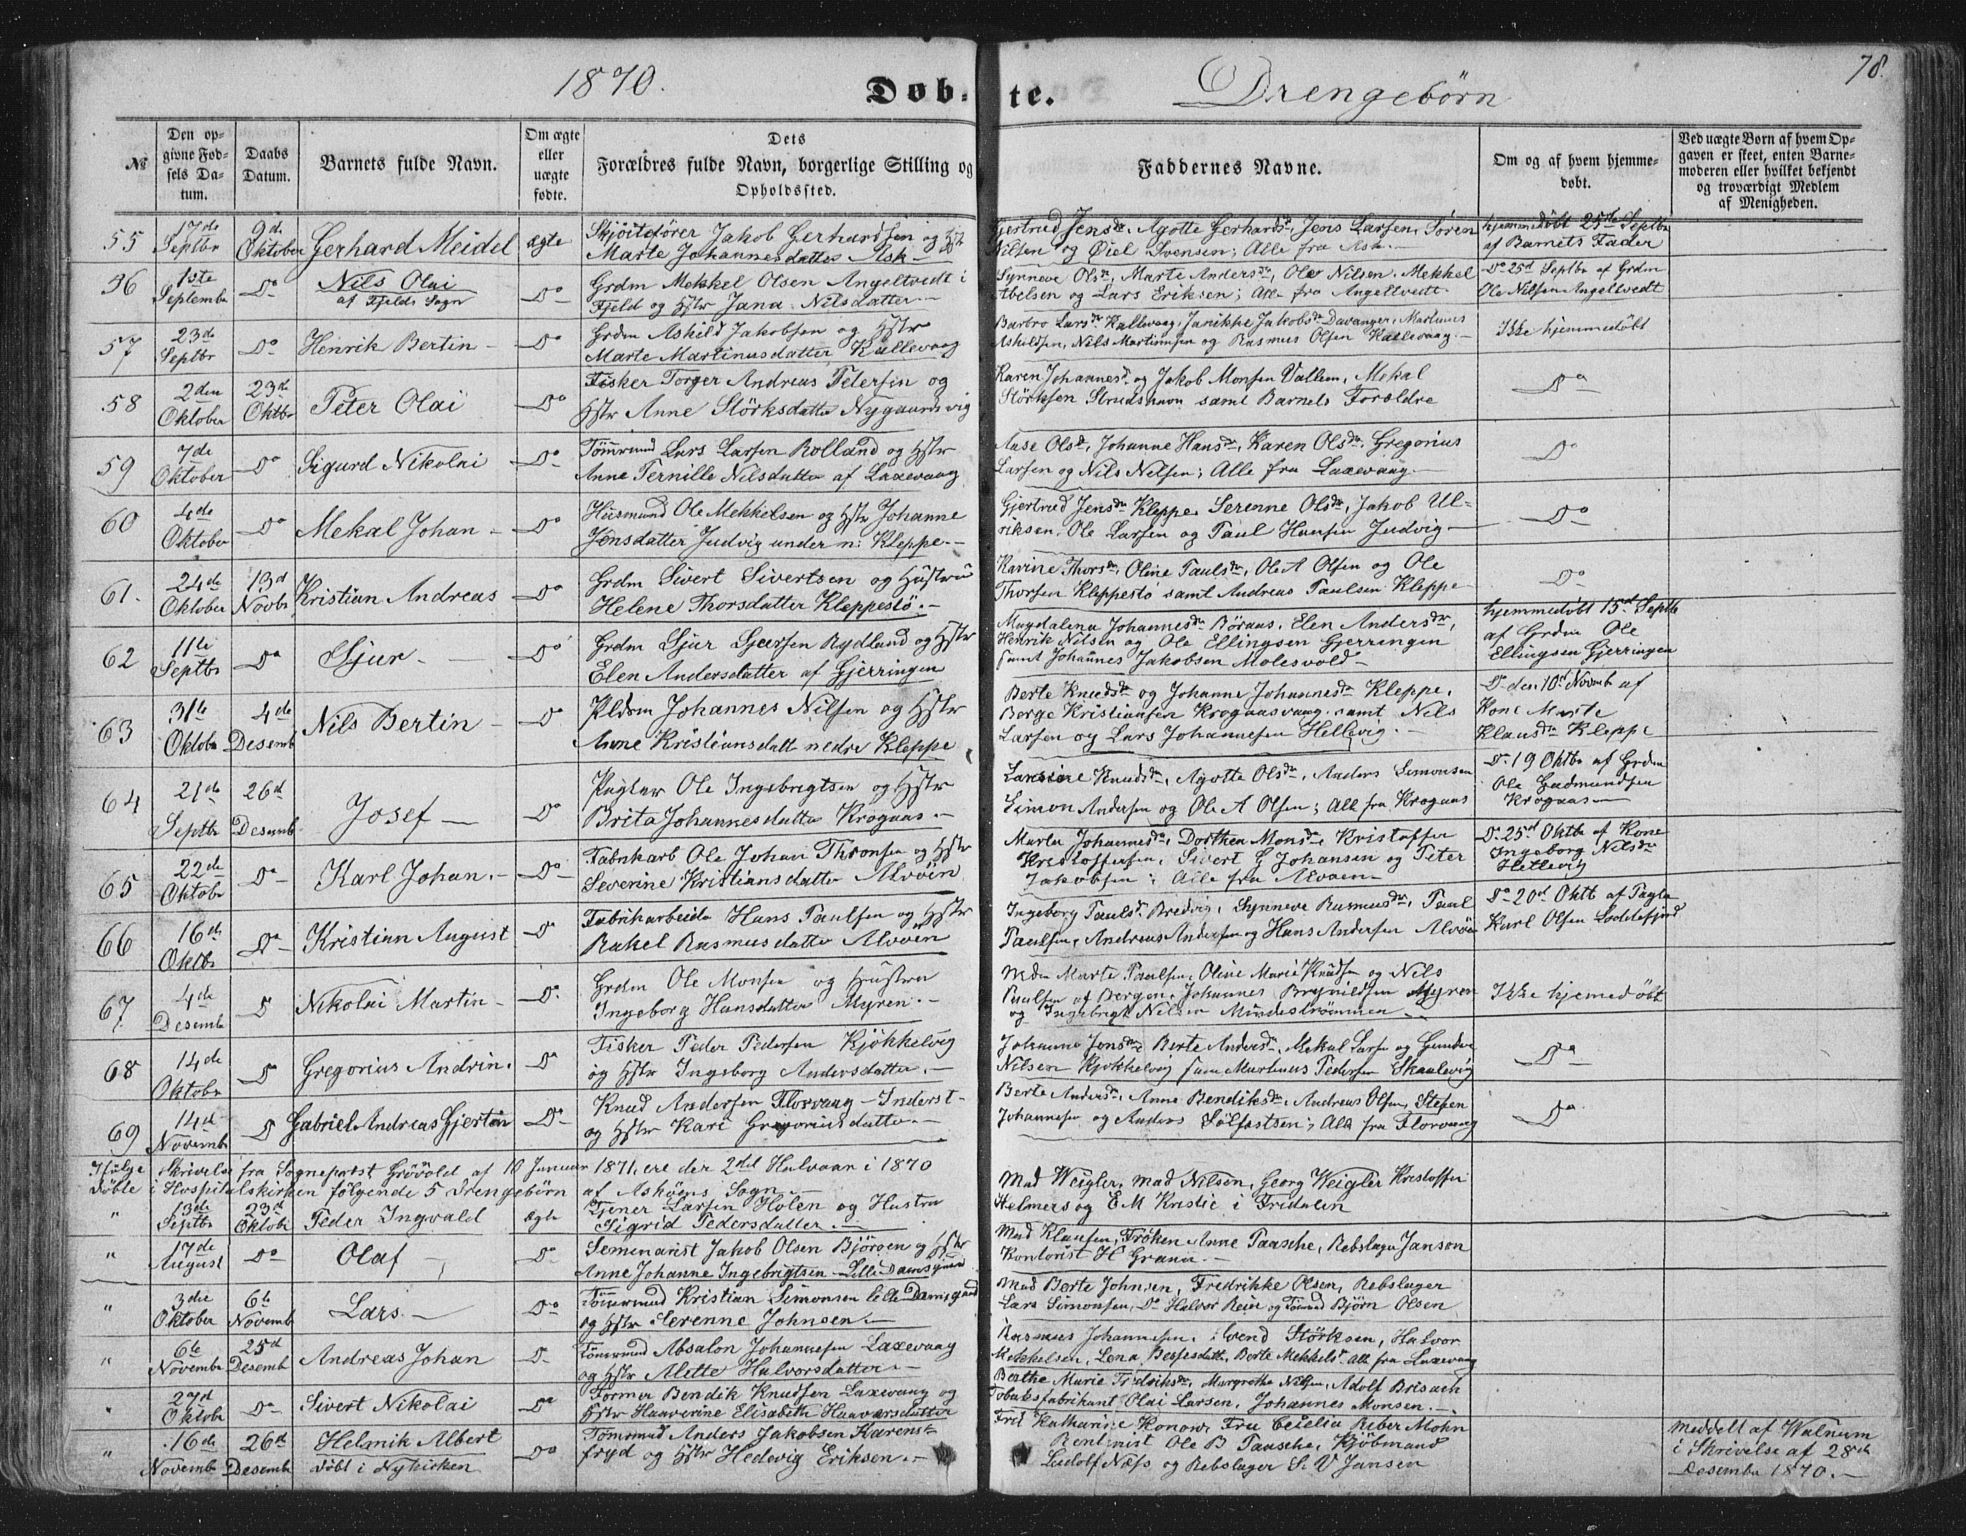 1870. Døb- te. Drengebørn 78.
№
Den opgivne Fødsels Datum.
Daabs Datum.
Barnets fulde Navn.
Om ægte eller uægte fødte.
Dets Forældres fulde Navn, borgerlige Stilling og Opholdssted.
Faddernes Navne.
Om og af hvem hjemmedøbt.
Ved uægte Børn af hvem Opgaven er skeet, enten Barnemoderen eller hvilket bekjendt og troværdigt Medlem af Menigheden.
55 17de Septbr 9d Oktober Gerhard Meidel ægte Skjøitefører Jakob Gerhardsen og Hstr Gjertrud Jensdr, Agotte Gerhardsdr, Jens Larsen, Søren hjemmedøbt 25de Septbr
Marte Johannesdatter Ask Nilsen og Øiel Svensen; Alle fra Ask. af Barnets Fader
56 1ste September Do Nils Olai Do Grdm Mekkel Olsen Angeltvedt i Synneve Olsdr, Marte Andersdr, Ole Nilsen, Mekkel Do 25d Septbr af Grdm
af Fjelds Sogn Fjeld og Hstr Jana Nilsdatter Abelsen og Lars Eriksen; Alle fra Angeltvedt Ole Nilsen Angeltvedt
57 23de Septbr Do Henrik Bertin Do Grdm Askild Jakobsen og Hstr Barbro Larsdr Kallevaag, Janikke Jakobsdr Davanger, Martinus Ikke hjemmedøbt
Marte Martinusdatter Kallevaag Askildsen, Nils Martinusen og Rasmus Olsen Kallevaag
58 2den Oktober 23de Oktbr Peter Olai Do Fisker Torger Andreas Petersen og Karen Johannesdr og Jakob Monsen Vallem, Mekal Do
Hstr Anne Størksdatter Nygaardsvig Størksen Strudshavn samt Barnets Forældre
59 7de Oktober Do Sigurd Nikolai Do Tømrmd Lars Larsen Rolland og Hstr Aase Olsdr, Johanne Hansdr, Karen Olsdr, Gregorius Do
Anne Pernille Nilsdatter af Laxevaag Larsen og Nils Nilsen; Alle fra Laxevaag.
60 4de Oktober Do Mekal Johan Do Huusmand Ole Mekkelsen og Hstr Johanne Gjertrud Jensdr Kleppe, Serenne Olsdr, Jakob Ul- Do
Jensdatter Judvig under n: Kleppe. riksen, Ole Larsen og Paul Hansen Judvig
61. 24de Oktober 13d Novbr Kristian Andreas Do Grdm Sivert Sivertsen og Hustru Karine Thorsdr, Oline Paulsdr, Ole A Olsen og Ole Do
Helene Thorsdatter Kleppestø. Thorsen Kleppestø samt Andreas Paulsen Kleppe
62 11te Septbr Do Sjur Do Grdm Sjur Sjursen Rydland og Hstr Magdalena Johannesdr Børaas, Elen Andersdr, hjemmedøbt 15d Septbr
Elen Andersdatter af Gjerringen Henrik Nilsen og Ole Ellingsen Gjerringen af Grdm Ole
samt Johannes Jakobsen Molesvold Ellingsen Gjerringen
63 31te Oktbr 4de Desemb Nils Bertin Do Pldsm Johannes Nilsen og Hstr Berte Knudsdr og Johanne Johannesdr Kleppe, Do den 10d Novemb af
Anne Kristiansdatt nedre Kleppe Børge Kristiansen Krogaasvaag samt Nils Kone Marte
Larsen og Lars Johannesen Hellevig. Klausdr Kleppe
64 21de Septbr 26d Desemb Josef Do Ole Ingebrigtsen og Hstr Knudsdr, Agotte Olsdr, Anders Simonsen Do 19 Oktbr af Grdm
Brita Johannesdatter Krogaas. Simon Andersen og Ole A Olsen; Alle fra Krogaas Ole Gudmundsen Krogaas
65 22de Oktobr Do Karl Johan. Do Fabrikarb Ole Johan Thronsen og Hstr Marta Johannesdr, Dorthea Monsdr, Kristoffer Do 25d Oktbr af Kone
Severine Kristiansdatter Alvøen Kristoffersen, Sivert G Johansen og Peter Ingeborg Nilsdr
Jakobsen; Alle fra Alvøen Hetlevig
66 16de Oktbr Do Kristian August Do Fabrikarbeider Hans Paulsen og Hstr Ingeborg Paulsdr Bredvig, Synneve Rasmusdr, Paul Do 20d Oktb af
Rakel Rasmusdatter Alvøen Paulsen, Andreas Andersen og Hans Andersen Alvøen Karl Olsen Loddefjord
67. 4de Desembr Do Nikolai Martin Do Grdm Ole Monsen og Hustru Mdm Marte Paulsen, Oline Marie Knudsen og Nils
Ingeborg Hansdatter Myren. Paulsen af Bergen, Johannes Brynildsen Myren Ikke hjemedøbt
og Ingebrigt Nilsen Mindestrømmen
68 14de Oktobr Do Gregorius Andrin. Do Fisker Peder Pedersen Kjøkkelvig Johanne Jensdr, Berte Andersdr, Mekal Larsen og Gunder Do
og Hstr Ingeborg Andersdatter. Nilsen Kjøkkelvig samt Martinus Pedersen Skaalevig
69 14d Novembr Do Gabriel Andreas Gjertin Do Knud Andersen Florvaag Inderst Berte Andersdr, Anne Bendiksdr, Andreas Olsen, Stefen Do
og Hstr Kari Gregoriusdatter. Johannesen og Anders Sølfastsen; Alle fra Florvaag
Ifølge Skrivelse fra Sogneprest Grøvold af 10 Januar 1871, ere der 2det Halvaar i 1870
døbte i Hospitalskirken følgende 5 Drengebørn af Askøens Sogn
" 13de Septbr 23d Oktobr Peder Ingvald ægte Larsen Holen og Hustru Mad Weigler, Mad Nilsen, Georg Weigler, Kristoffer
Sigrid Pedersdatter. Helmers og E M Kastie i Fridalen
" 17de August Do Olaf Do Seminarist Jakob Olsen Bjørgen og Hstr Mad Klausen, Frøken Anne Paasche, Rebslager Janson
Anne Johanne Ingebrigtsen Lille Damsgaard Kontorist H Granu.
" 3die Oktober 6te Novemb Lars. Do Tømrmd Kristian Simonsen lille Damsgaard Mad Berte Johnsen, Fredrikke Olsen, Rebslager
og Hstr Serenne Johnsen. Lars Simonsen, Do Halvor Reier og Tømrmd Bjørn Olsen
" 6te Novembr 25d Desembr Andreas Johan Do Tømrmd Absalon Johannesen Laxevaag Rasmus Johannesen, Svend Størksen, Halvor
og Hstr Alette Halvorsdatter. Mekkelsen, Lena Bessesdatt, Berte Mekkelsdr Alle fra Laxevaag
" 27d Oktobr Do Sivert Nikolai Do Former Bendik Knudsen Laxevaag og Berthe Marie Fredriksdr, Margrethe Nilsen, Adolf Brisach
Hstr Haaverine Elisabeth Haavarsdatter Tobaksfabrikant Olai Larsen, Johannes Monsen.
" 16de Novembr 26d Desembr Helmik Albert Do Tømrmd Anders Jakobsen Karens- Frø Katharine Konow, Fru Cecilia Reber Mohn Meddelt af Walnum
døbt i Nykirken fryd og Hstr Hedevig Eriksen. Rentenist Ole B Paasche, Kjøbmand i Skrivelse af 28de
Ludolf Næss og Rebslager S. V Jansen Desember 1870.